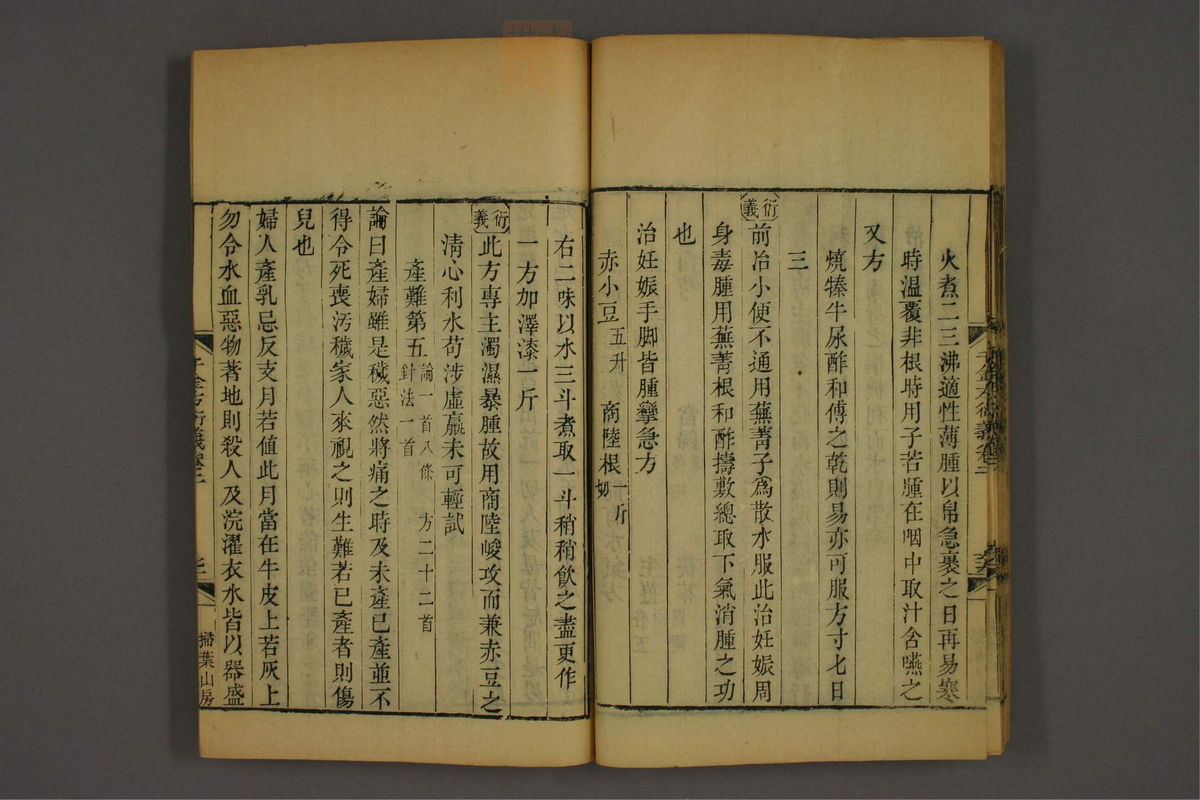 火煮二三沸適性薄腫以帛急裹之日再易寒
時溫覆非根時用子若腫在咽中取汁含嚥之
又方
燒㹀牛屎酢和傅之乾則易亦可服方寸七日
三
衍義
前治小便不通用蕪菁子為散水服此治妊娠周
身毒腫用蕪菁根和酢擣敷總取下氣消腫之功
也
治妊娠手脚皆腫攣急方
赤小豆五升 商陸根一斤切
右二味以水三斗煮取一斗稍稍飲之盡更作
一方加澤漆一斤
衍義
此方專主濁濕暴腫故用商陸峻攻而兼赤豆之
清心利水苟涉虛羸未可輕試
產難第五論一首八條 方二十二首 針法一首
論曰產婦雖是穢惡然將痛之時及未產已產並不
得令死喪汚穢家人來視之則生難若已產者則傷
兒也
婦人產乳忌反支月若值此月當在牛皮上若灰上
勿令水血惡物著地則殺人及浣濯衣水皆以器盛
千金方衍義卷二
掃葉山房